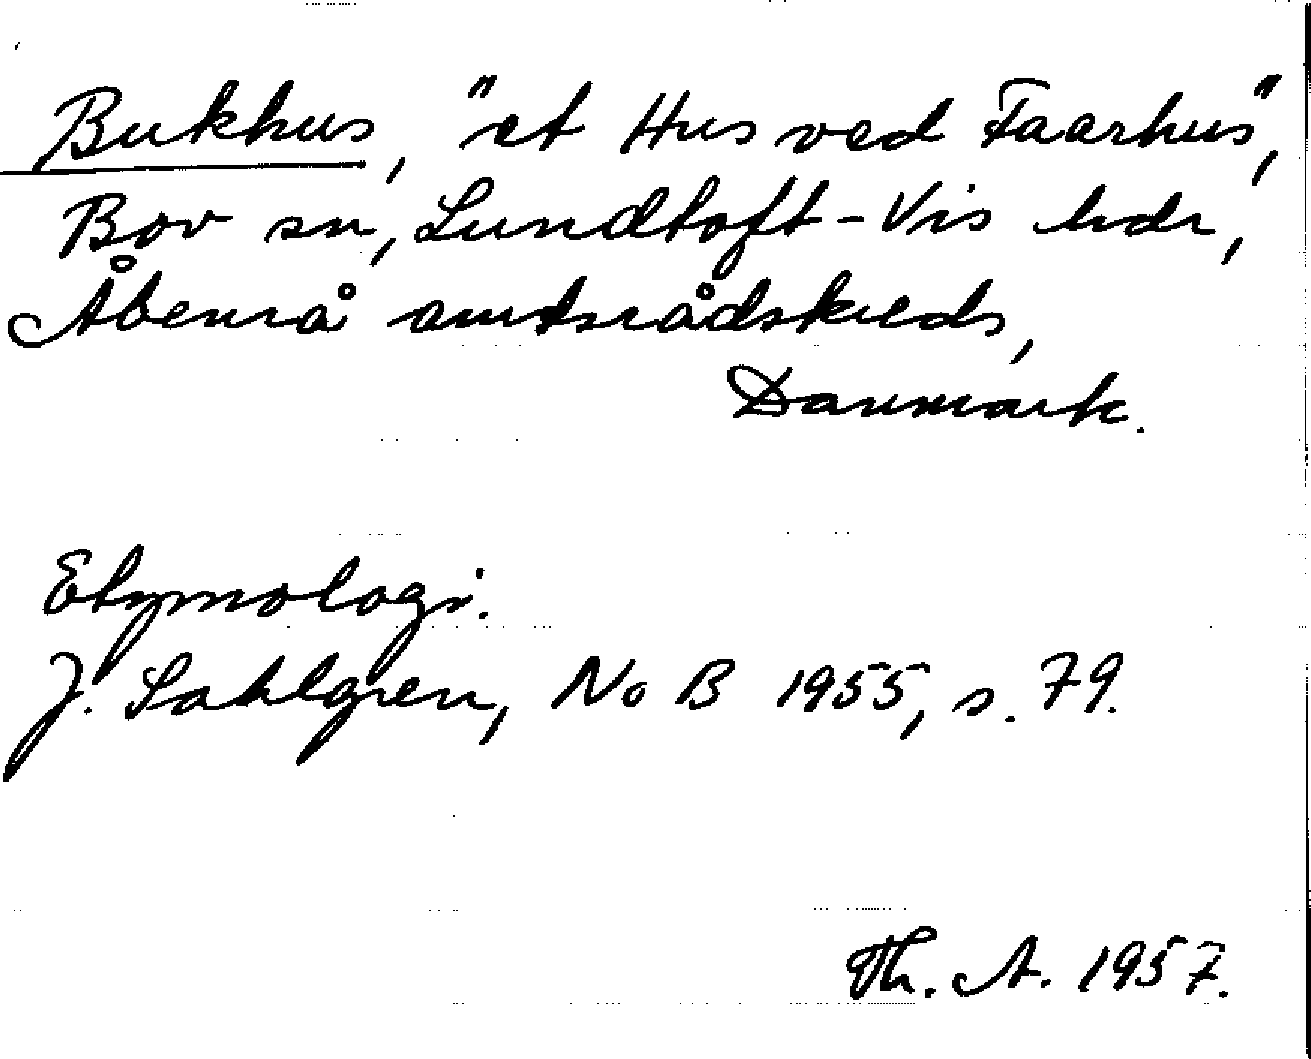 Bukhus, "et Hus ved Faarhus",
Bov sn, Lundtoft-Vis hdr,
Åbenrå amtsrådskreds,
Danmark.
Etymologi.
J. Sahlgren, NoB 1955, s. 79.
Th. A. 1957.